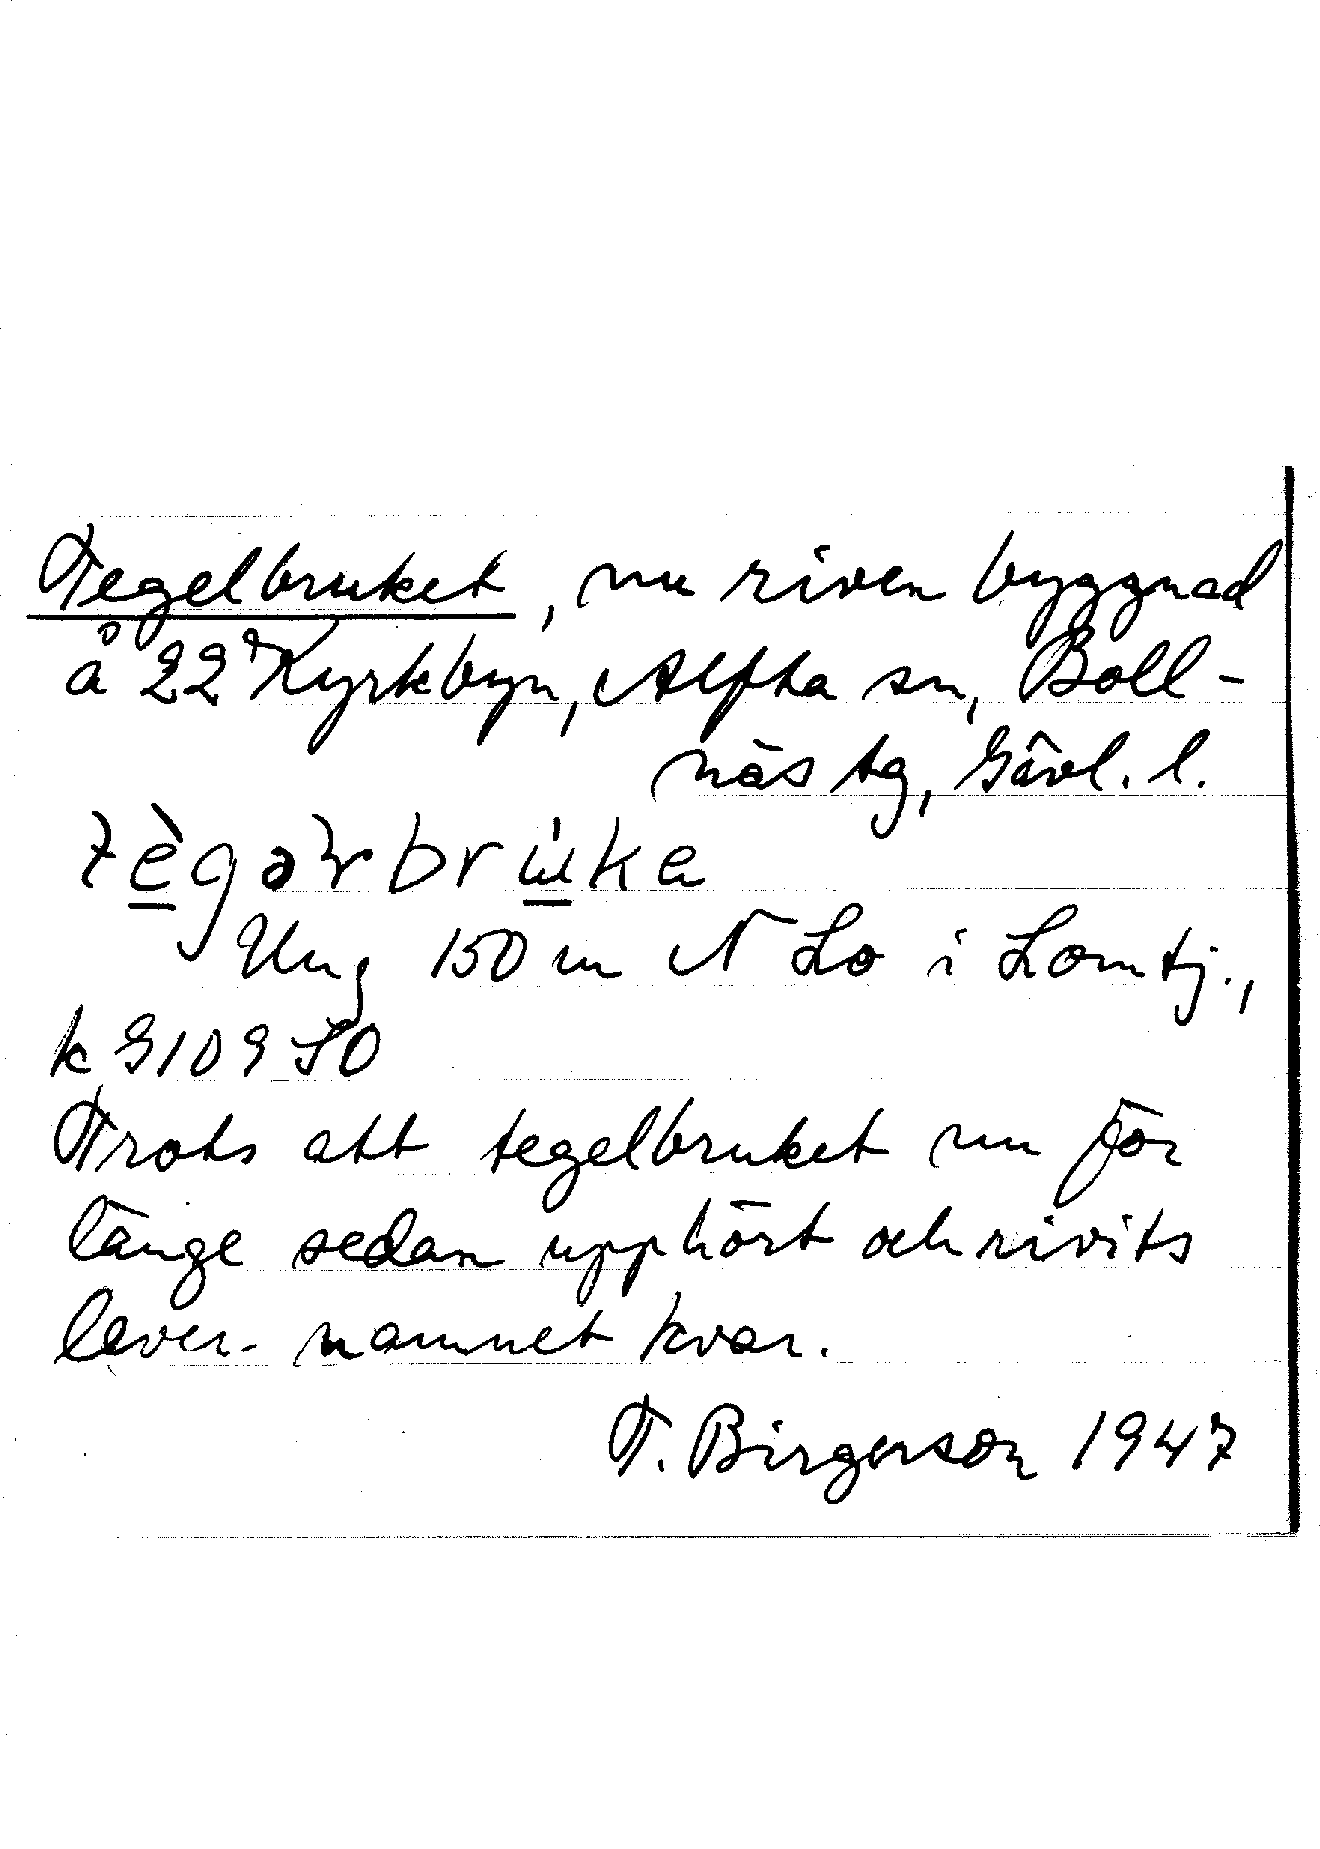 Tegelbruket, nu riven byggnad
å 22 Kyrkbyn, Alfta sn, Boll-
näs tg, Gävl. l.
Ung 150 m N Lo i Lomtj.,
k 910950
Trots att tegelbruket nu för
länge sedan upphört och rivits
lever namnet kvar.
T. Birgerson 1947